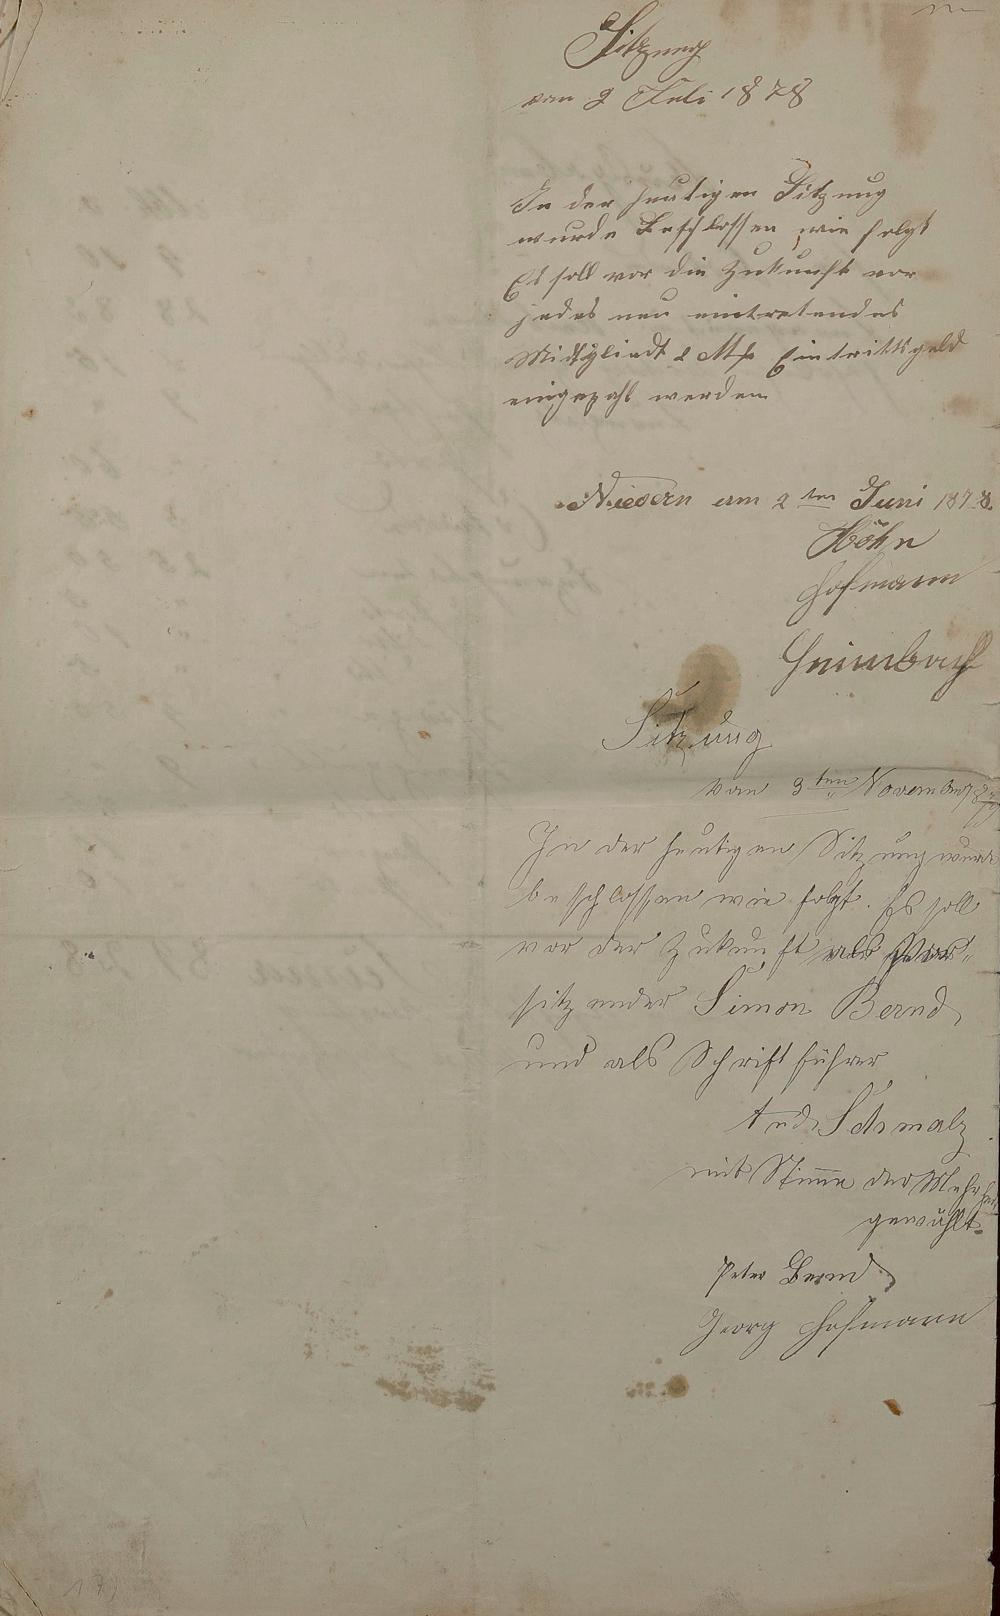 Sitzung
vom 2 Juli 1878
In der heutigen Sitzung
wurde Beschlossen wie folgt
Es soll vor die Zukunft vor
jedes neu eintretendes
Mitgliedt 2 Mk Eintrittsgeld
eingezahl werden
Niedern am 2ten Juni 1878.
Höhn
Hofmann
Grimbach
Sitzung
vom 3ten November
In der heutigen Sitzung wurde
beschlossen wie folgt. Es soll
vor der Zukunft als Vor-
sitzender Simon Bernd
und als Schriftführer
And Schmalz
mit Stimme der Mehrheit
gewählt.
Peter Bernd
Georg Hofmann